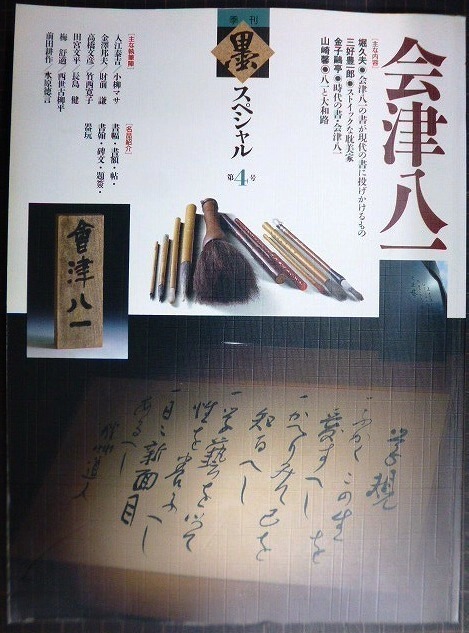 会津八一
[主な内容]
堀久夫●会津八一の書が現代の書に投げかけるもの
三好豊一郎●ストイックな耽美家
金子鷗亭●時代の書・会津八一
山崎馨●八一と大和路
季刊
墨
スペシャル
第4号
[主な執筆陣]
入江泰吉／小柳マサ
金澤邦夫／財前 謙
高橋文彦／竹西寛子
田宮文平／長島 健
梅 舒適／西世古柳平
前田耕作／水原徳言
[名品紹介]
書幅・書額・帖・
書翰・碑文・題簽・
器玩
會津八一
学規
一ふかくこの生を
愛すへし
一かへりみて己を
知るへし
一学藝を以て
性を養ふへし
一日々新面目
あるへし